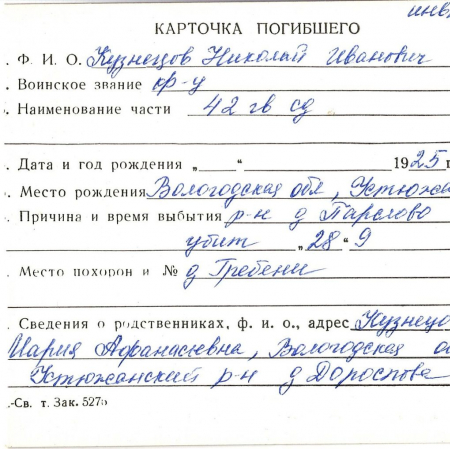 инв.
КАРТОЧКА ПОГИБШЕГО
. Ф. И. О. Кузнецов Николай Иванович
. Воинское звание кр-ц
. Наименование части 42 гв сд
. Дата и год рождения „ “ 1925 г
. Место рождения Вологодская обл, Устюже
. Причина и время выбытия р-н д Парслово
убит „28“ 9
. Место похорон и № д Гребени
. Сведения о родственниках, ф. и. о., адрес Кузнецо
Мария Афанасьевна, Вологодская о
Устюжанский р-н д
.-Св. т. Зак. 5275